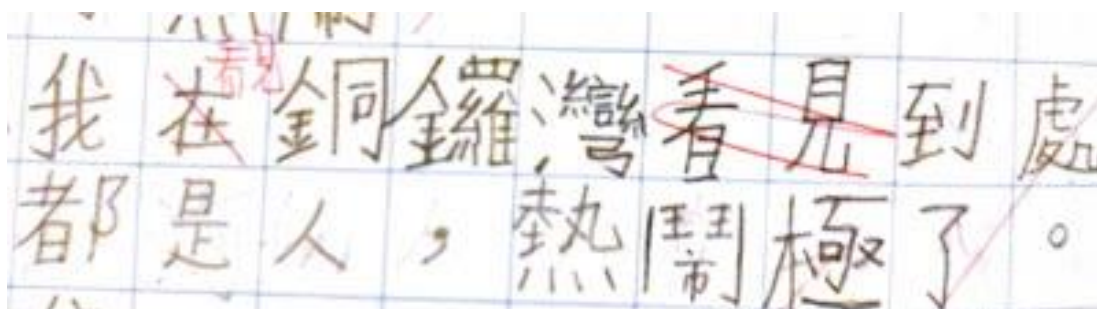 看見
我在銅鑼灣看見到處
都是人，熱鬧極了。